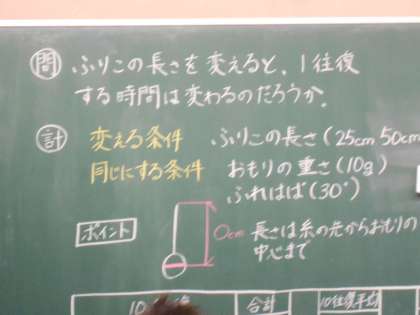 問 ふりこの長さを変えると、1往復
する時間は変わるのだろうか。
計 変える条件 ふりこの長さ(25cm 50cm
同じにする条件 おもりの重さ(10g)
ふれはば(30°)
ポイント 0cm 長さは糸の元からおもりの
中心まで
10 合計 10往復平均